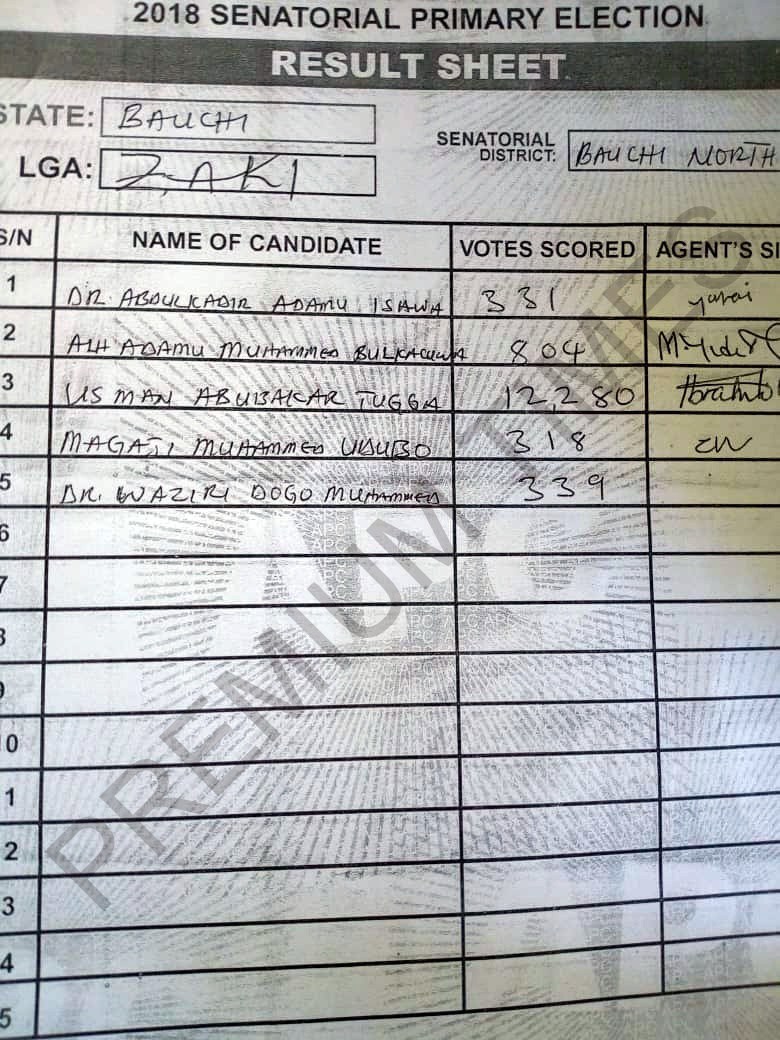 2018 SENATORIAL PRIMARY ELECTION
RESULT SHEET
STATE: BAUCHI
SENATORIAL DISTRICT: BAUCHI NORTH
LGA: ZAKI
S/N NAME OF CANDIDATE VOTES SCORED AGENT'S SI
1 DR. ABDULKADIR ADAMU ISAWA 331
2 ALH ADAMU MUHAMMED BULKACHUWA 804
3 USMAN ABUBAKAR TUGGA 12,280
4 MAGAJI MUHAMMED UDUBO 318
5 DR. WAZIRI DOGO MUHAMMED 339
6
7
8
9
0
1
2
3
4
5
PREMIUM TIMES